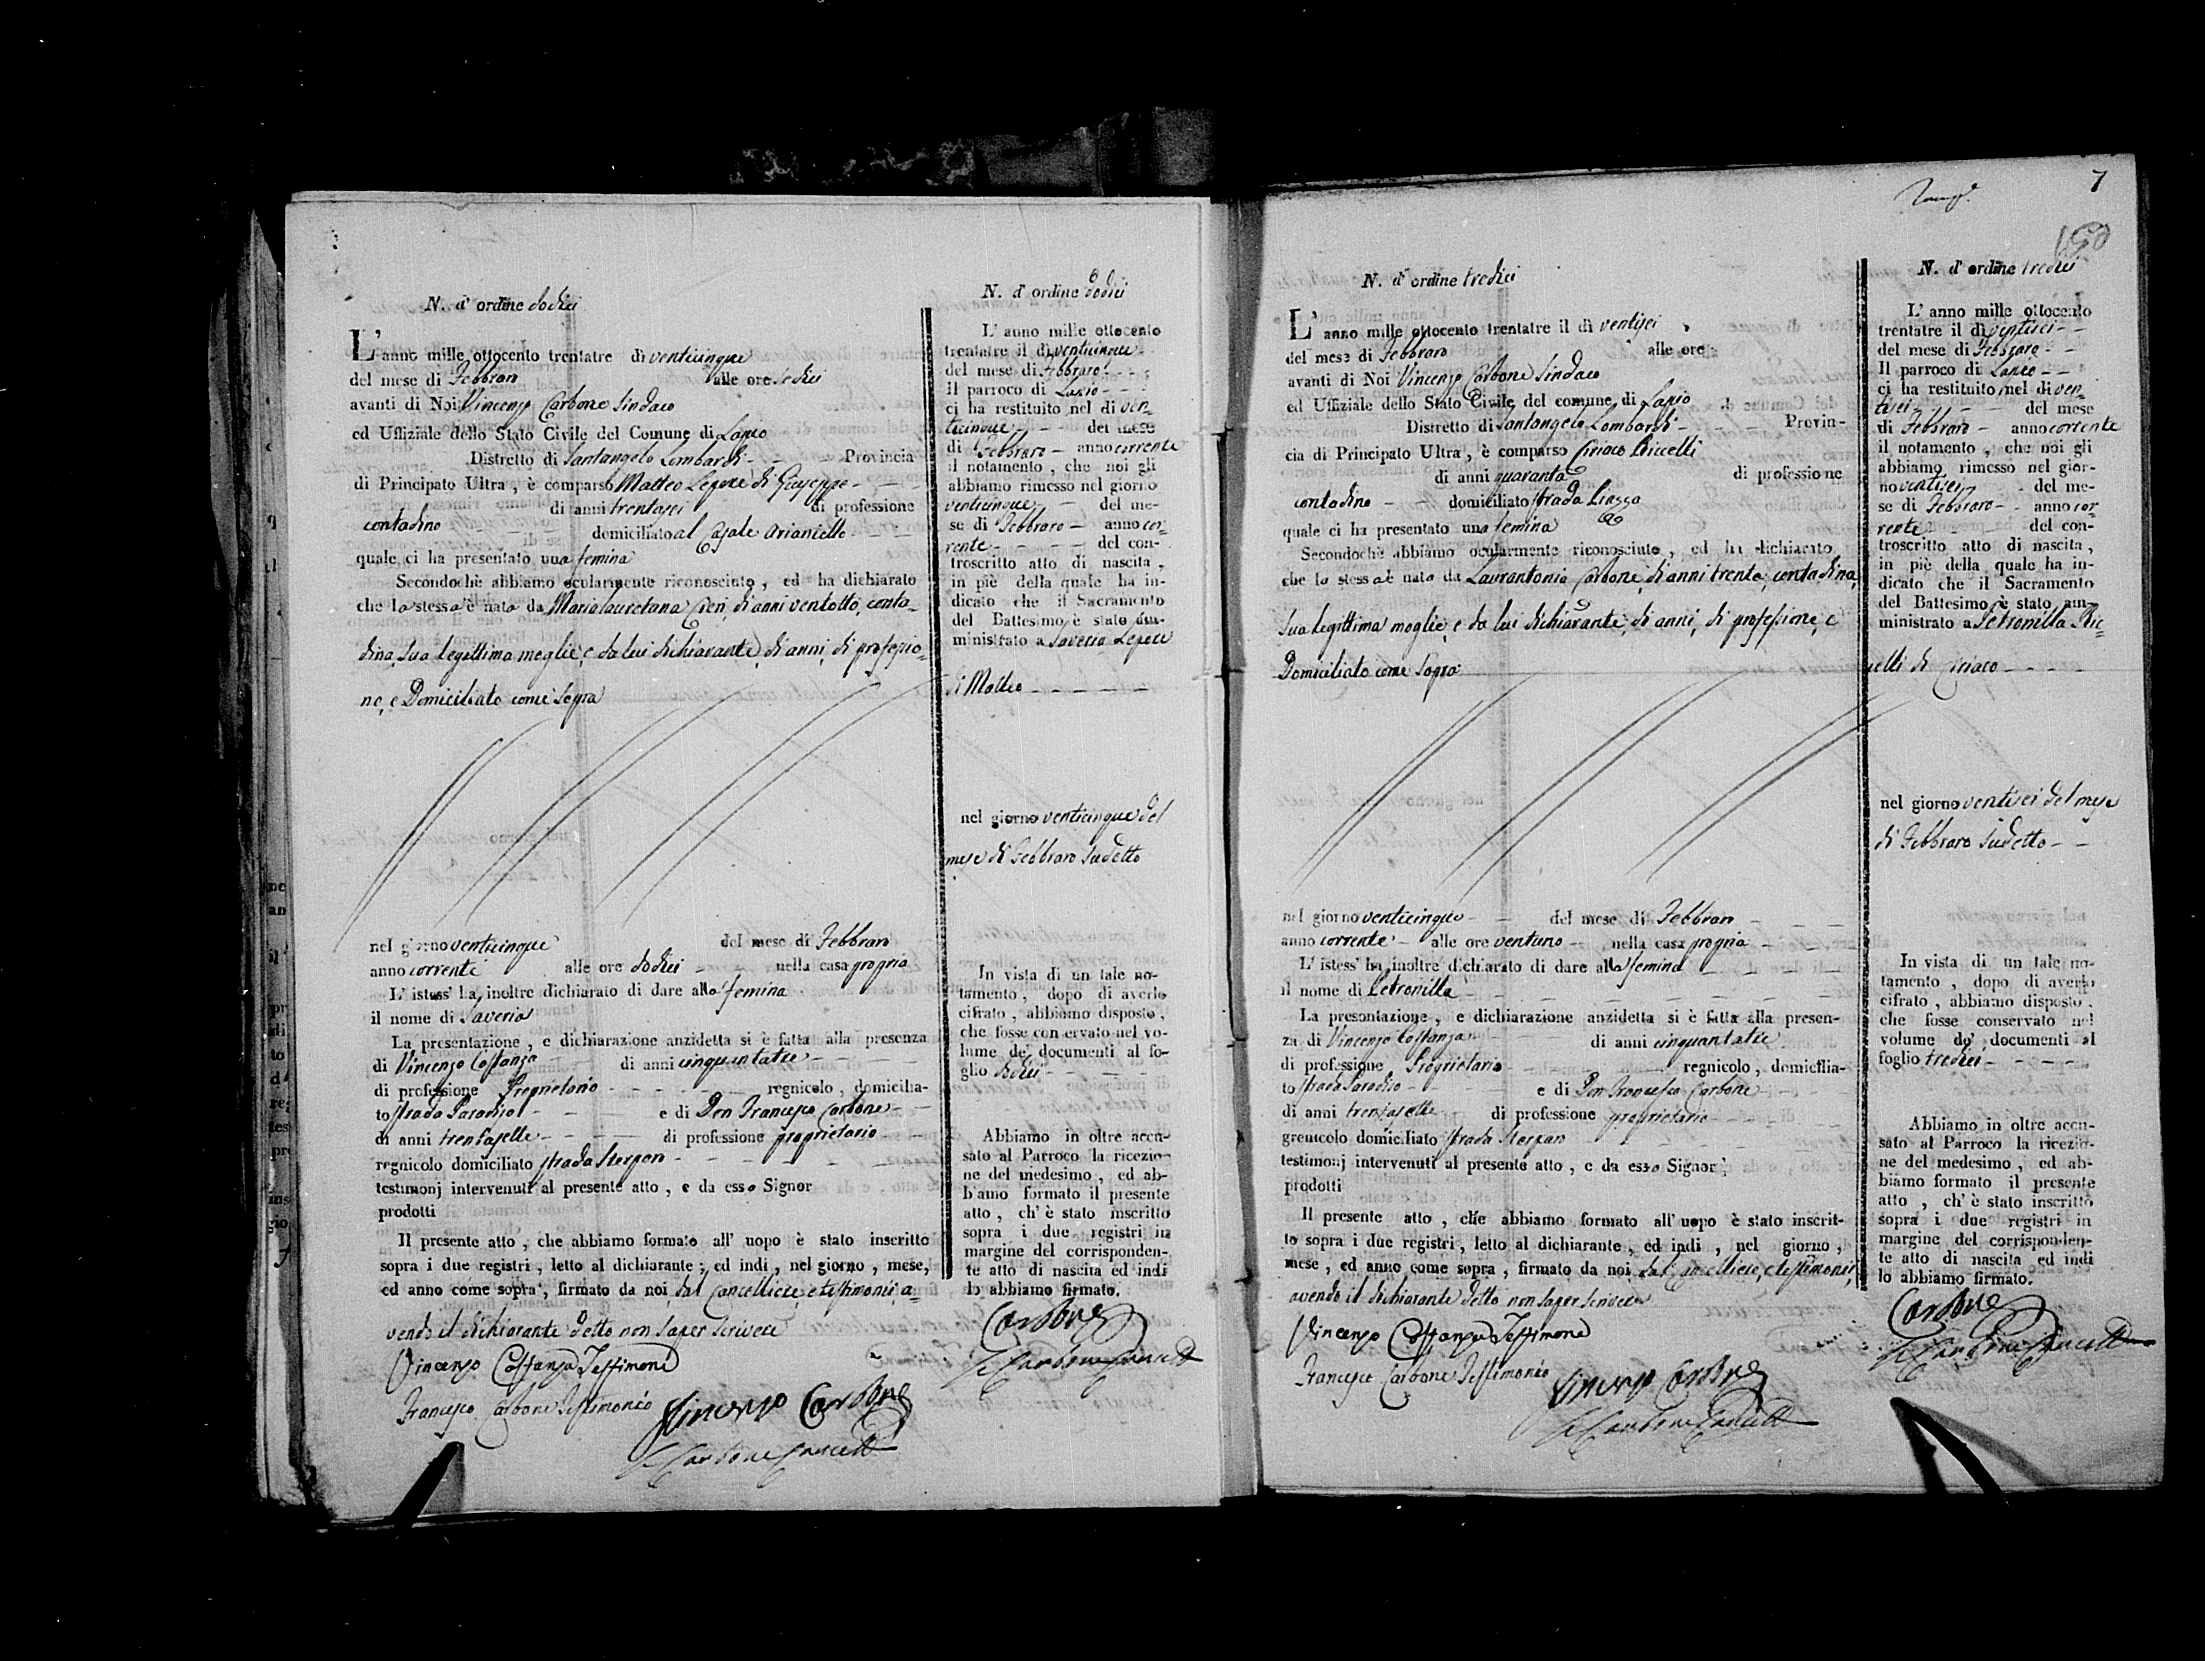 N. d' ordine dodici
L' anno mille ottocento trentatre dì venticinque
del mese di Febbraro alle ore sedici
avanti di Noi Vincenzo Carbone Sindaco
ed Uffiziale dello Stato Civile del Comune di Lapio
Distretto di Santangelo Lombardi - - Provincia
di Principato Ultra, è comparso Matteo Lepore di Giuseppe - -
di anni trentasei di professione
contadino domiciliato al Casale Arianiello
quale ci ha presentato una femina
Secondochè abbiamo ocularmente riconosciuto, ed ha dichiarato
che la stessa è nata da Maria Lauretana Cieri, di anni ventotto, conta-
dina, sua legittima moglie, e da lui dichiarante, di anni, di professio-
ne, e Domiciliato come sopra
nel giorno venticinque del mese di Febbraro
anno corrente alle ore dodici - nella casa propria
L' istess' ha inoltre dichiarato di dare alla femina
il nome di Saveria
La presentazione, e dichiarazione anzidetta si è fatta alla presenza
di Vincenzo Costanza - di anni cinquantatre - - -
di professione Proprietario - - - regnicolo, domicilia-
to strada Paradiso - - - e di Don Francesco Carbone - -
di anni trentasette - - - di professione proprietario - -
regnicolo domiciliato strada Sterparo - - -
testimonj intervenuti al presente atto, e da esso Signor
prodotti
Il presente atto, che abbiamo formato all' uopo è stato inscritto
sopra i due registri, letto al dichiarante, ed indi, nel giorno, mese,
ed anno come sopra, firmato da noi, dal Cancelliere, e testimonii, a-
vendo il dichiarante detto non saper scrivere
Vincenzo Costanza Testimone
Francesco Carbone Testimonio
Vincenzo Carbone
Carbone Cancell
N. d' ordine dodici
L' anno mille ottocento
trentatre il dì venticinque
del mese di Febbraro -
Il parroco di Lapio - -
ci ha restituito nel dì ven-
ticinque - - - del mese
di Febbraro - anno corrente
il notamento, che noi gli
abbiamo rimesso nel giorno
venticinque - - del me-
se di Febbraro - anno cor-
rente - - - del con-
troscritto atto di nascita,
in piè della quale ha in-
dicato che il Sacramento
del Battesimo è stato am-
ministrato a Saveria Lepore
di Matteo - - - - -
nel giorno venticinque del
mese di Febbraro sudetto
In vista di un tale no-
tamento, dopo di averlo
cifrato, abbiamo disposto,
che fosse conservato nel vo-
lume de' documenti al fo-
glio dodici - - - -
Abbiamo in oltre accu-
sato al Parroco la ricezio-
ne del medesimo, ed ab-
biamo formato il presente
atto, ch' è stato inscritto
sopra i due registri in
margine del corrisponden-
te atto di nascita ed indi
lo abbiamo firmato.
Carbone
Carbone Cancell
7
N. d' ordine tredici
L' anno mille ottocento trentatre il dì ventisei
del mese di Febbraro alle ore
avanti di Noi Vincenzo Carbone Sindaco
ed Uffiziale dello Stato Civile del comune di Lapio
Distretto di Santangelo Lombardi - - Provin-
cia di Principato Ultra, è comparso Ciriaco Riccelli
di anni quaranta di professione
contadino - - domiciliato strada Piazza
quale ci ha presentato una femina
Secondochè abbiamo ocularmente riconosciuto, ed ha dichiarato
che la stessa è nata da Laurantonia Carbone, di anni trenta, contadina,
sua legittima moglie, e da lui dichiarante, di anni, di professione, e
Domiciliato come sopra
nel giorno venticinque - - del mese di Febbraro - - -
anno corrente - alle ore ventuno - nella casa propria - - -
L' istess' ha inoltre dichiarato di dare alla femina - - -
il nome di Petronilla - - - -
La presentazione, e dichiarazione anzidetta si è fatta alla presen-
za di Vincenzo Costanza di anni cinquantatre
di professione Proprietario - - - regnicolo, domicilia-
to strada Paradiso - - - e di Don Francesco Carbone - -
di anni trentasette - di professione proprietario - -
gremcolo domiciliato strada Sterparo
testimonj intervenuti al presente atto, e da esso Signor
prodotti
Il presente atto, che abbiamo formato all' uopo è stato inscrit-
to sopra i due registri, letto al dichiarante, ed indi, nel giorno,
mese, ed anno come sopra, firmato da noi, dal Cancelliere, e testimonii,
avendo il dichiarante detto non saper scrivere
Vincenzo Costanza Testimone
Francesco Carbone Testimonio
Vincenzo Carbone
Carbone Cancell
N. d' ordine tredici
L' anno mille ottocento
trentatre il dì ventisei - -
del mese di Febbraro - -
Il parroco di Lapio - -
ci ha restituito nel dì ven-
tisei - - - del mese
di Febbraro - anno corrente
il notamento, che noi gli
abbiamo rimesso nel gior-
no ventisei - del me-
se di Febbraro - anno cor-
rente - - del con-
troscritto atto di nascita,
in piè della quale ha in-
dicato che il Sacramento
del Battesimo è stato am-
ministrato a Petronilla Ric-
celli di Ciriaco - - - -
nel giorno ventisei del mese
di Febbraro sudetto - -
In vista di un tale no-
tamento, dopo di averlo
cifrato, abbiamo disposto,
che fosse conservato nel
volume de' documenti al
foglio tredici - - - -
Abbiamo in oltre accu-
sato al Parroco la ricezio-
ne del medesimo, ed ab-
biamo formato il presente
atto, ch' è stato inscritto
sopra i due registri in
margine del corrisponden-
te atto di nascita ed indi
lo abbiamo firmato.
Carbone
Carbone Cancell